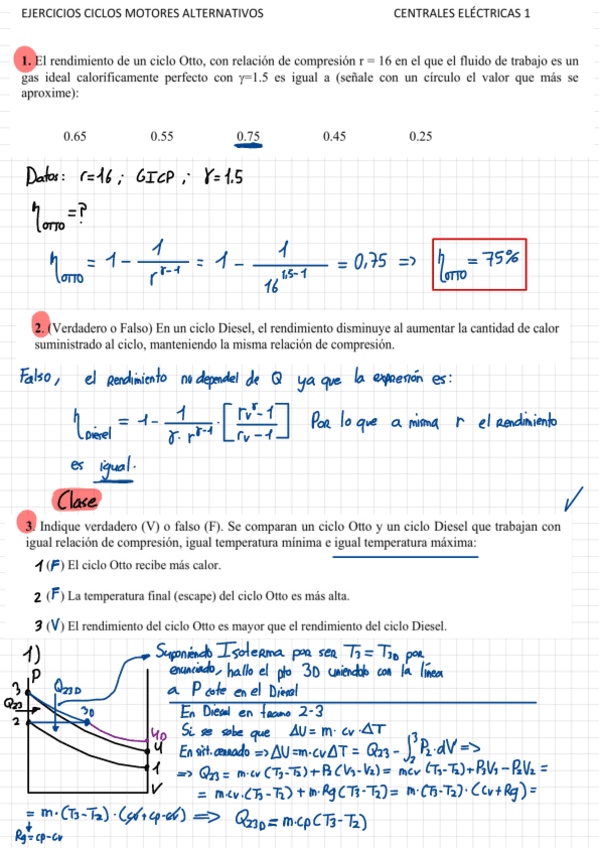 EJERCICIOS CICLOS MOTORES ALTERNATIVOS CENTRALES ELÉCTRICAS 1
1. El rendimiento de un ciclo Otto, con relación de compresión r = 16 en el que el fluido de trabajo es un
gas ideal caloríficamente perfecto con γ=1.5 es igual a (señale con un círculo el valor que más se
aproxime):
0.65 0.55 0.75 0.45 0.25
Datos: r=16 ; GICP ; γ=1.5
η OTTO = ?
η OTTO = 1 - 1 / r^(γ-1) = 1 - 1 / 16^(1,5-1) = 0,75 => η OTTO = 75%
2. (Verdadero o Falso) En un ciclo Diesel, el rendimiento disminuye al aumentar la cantidad de calor
suministrado al ciclo, manteniendo la misma relación de compresión.
Falso, el Rendimiento no dependel de Q ya que la expresión es:
η Diesel = 1 - 1 / (γ · r^(γ-1)) · [(rv^γ - 1) / (rv - 1)] Por lo que a misma r el Rendimiento
es igual.
Clase
3. Indique verdadero (V) o falso (F). Se comparan un ciclo Otto y un ciclo Diesel que trabajan con
igual relación de compresión, igual temperatura mínima e igual temperatura máxima:
1 (F) El ciclo Otto recibe más calor.
2 (F) La temperatura final (escape) del ciclo Otto es más alta.
3 (V) El rendimiento del ciclo Otto es mayor que el rendimiento del ciclo Diesel.
1)
P
3
Q23
2
Q23D
3D
4D
4
1
V
Suponiendo Isoterma por ser T3 = T3D por
enunciado, hallo el pto 3D uniendolo con la línea
a P cote en el Diesel
En Diesel en tramo 2-3
Si se sabe que ΔU = m · cv · ΔT
En sit. cerrado => ΔU = m·cv ΔT = Q23 - ∫₂³ P2 · dV =>
=> Q23 = m·cv (T3-T2) + P2 (V3-V2) = mcv (T3-T2) + P3V3 - P2V2 =
= m·cv · (T3-T2) + m·Rg (T3-T2) = m·(T3-T2) · (cv+Rg) =
= m · (T3-T2) · (cv + cp - cv) => Q23D = m·cp (T3-T2)
Rg = cp-cv